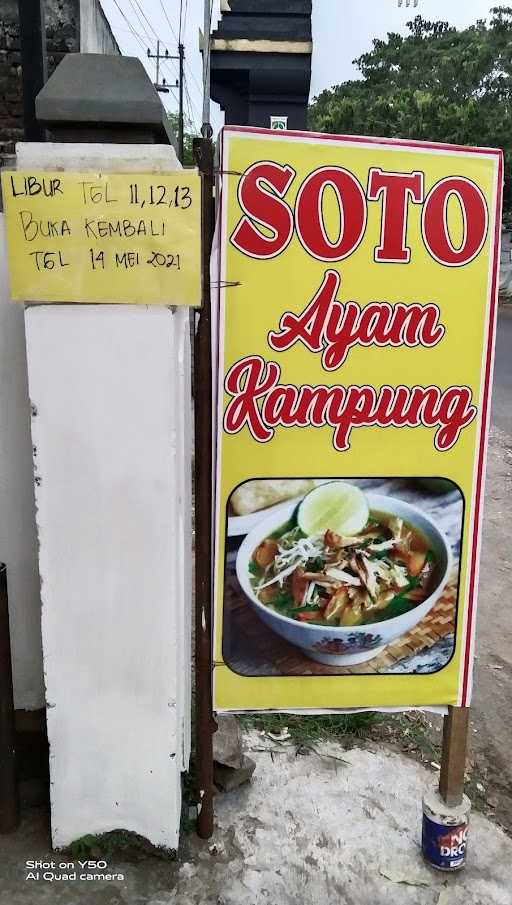 LIBUR TGL 11,12,13
BUKA KEMBALI
TGL 14 MEI 2021
SOTO
Ayam
Kampung
NO
DRO
Shot on Y50
AI Quad camera